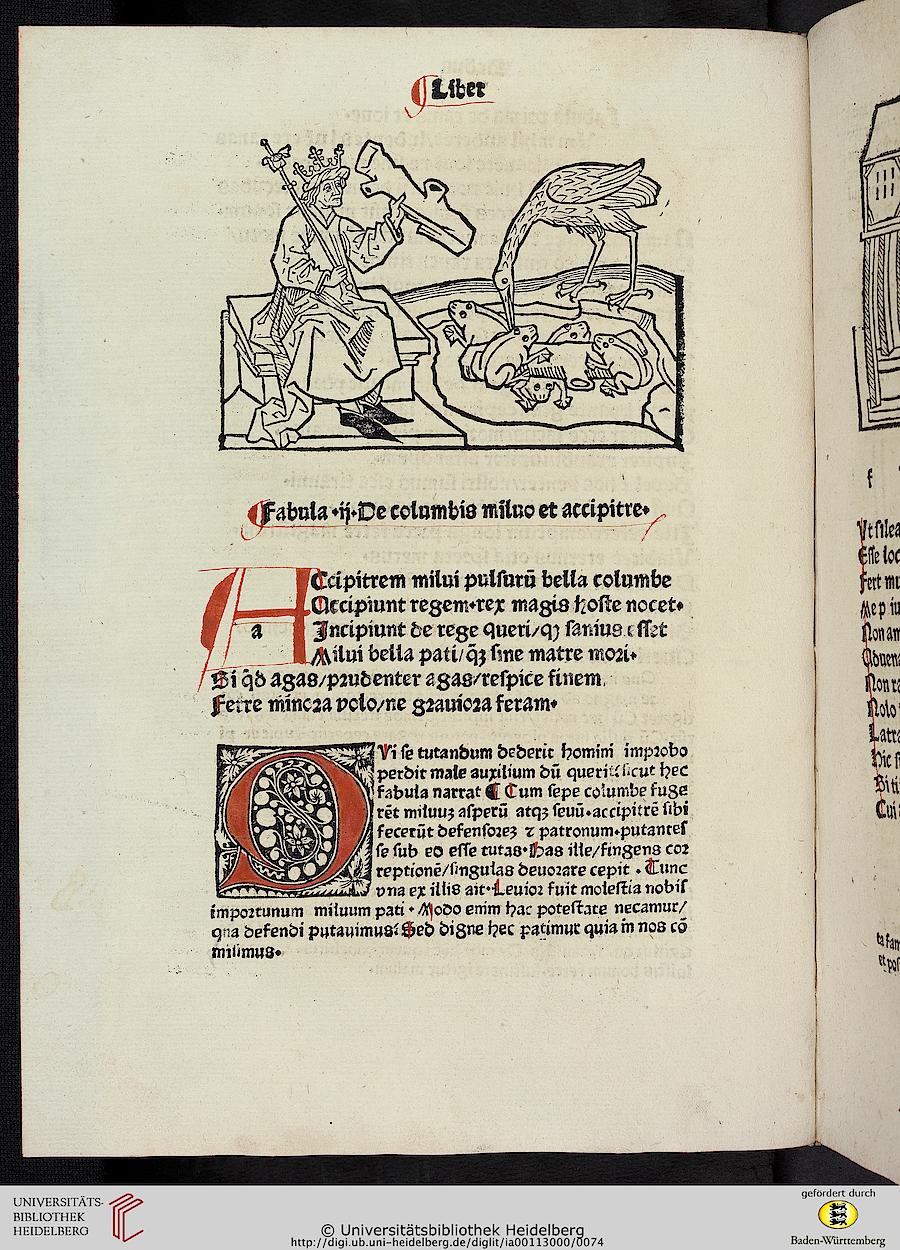 ¶Liber
¶Fabula .ij. De columbis miluo et accipitre.
a
ACcipitrem milui pulsurū bella columbe
Accipiunt regem. rex magis hoste nocet.
Incipiunt de rege queri/ qꝫ sanius esset
Milui bella pati/ q̄ꝫ sine matre mori.
Si qd̄ agas/ prudenter agas/ respice finem.
Ferre minora volo/ ne grauiora feram.
QVi se tutandum dederit homini improbo
perdit male auxilium dū querit: sicut hec
fabula narrat ¶ Cum sepe columbe fuge
rēt miluuꝫ asperū atqꝫ seuū. accipitrē sibi
fecerūt defensoreꝫ ⁊ patronum. putantes
se sub eo esse tutas. Has ille/ fingens cor
reptionē/ singulas deuorare cepit . Tunc
vna ex illis ait. Leuior fuit molestia nobis
importunum miluum pati . Modo enim hac potestate necamur/
qua defendi putauimus: Sed digne hec patimur quia in nos cō
misimus.
f
Ut silea
Esse loc
Fert mu
Me p iu
Non am
Aduena
Non ra
Nolo
Latra
Hic
Si ti
Cui
ta fam
et pos
UNIVERSITÄTS-
BIBLIOTHEK
HEIDELBERG
© Universitätsbibliothek Heidelberg
http://digi.ub.uni-heidelberg.de/diglit/ia00113000/0074
gefördert durch
Baden-Württemberg